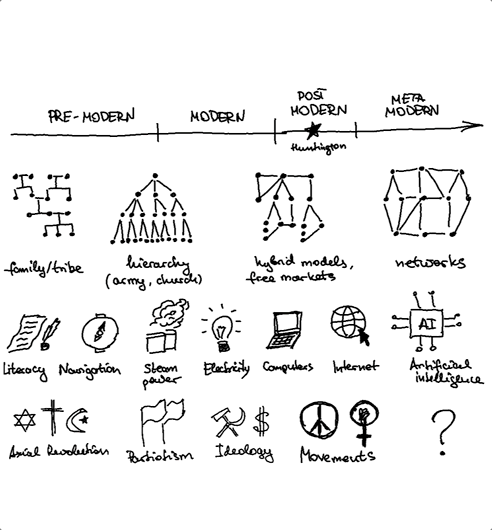 PRE-MODERN
MODERN
POST
MODERN
META
MODERN
Huntington
family/tribe
hierarchy
(army, church)
hybrid models,
free markets
networks
AI
Literacy
Navigation
Steam
power
Electricity
Computers
Internet
Artificial
intelligence
$
Axial Revolution
Patriotism
Ideology
Movements
?